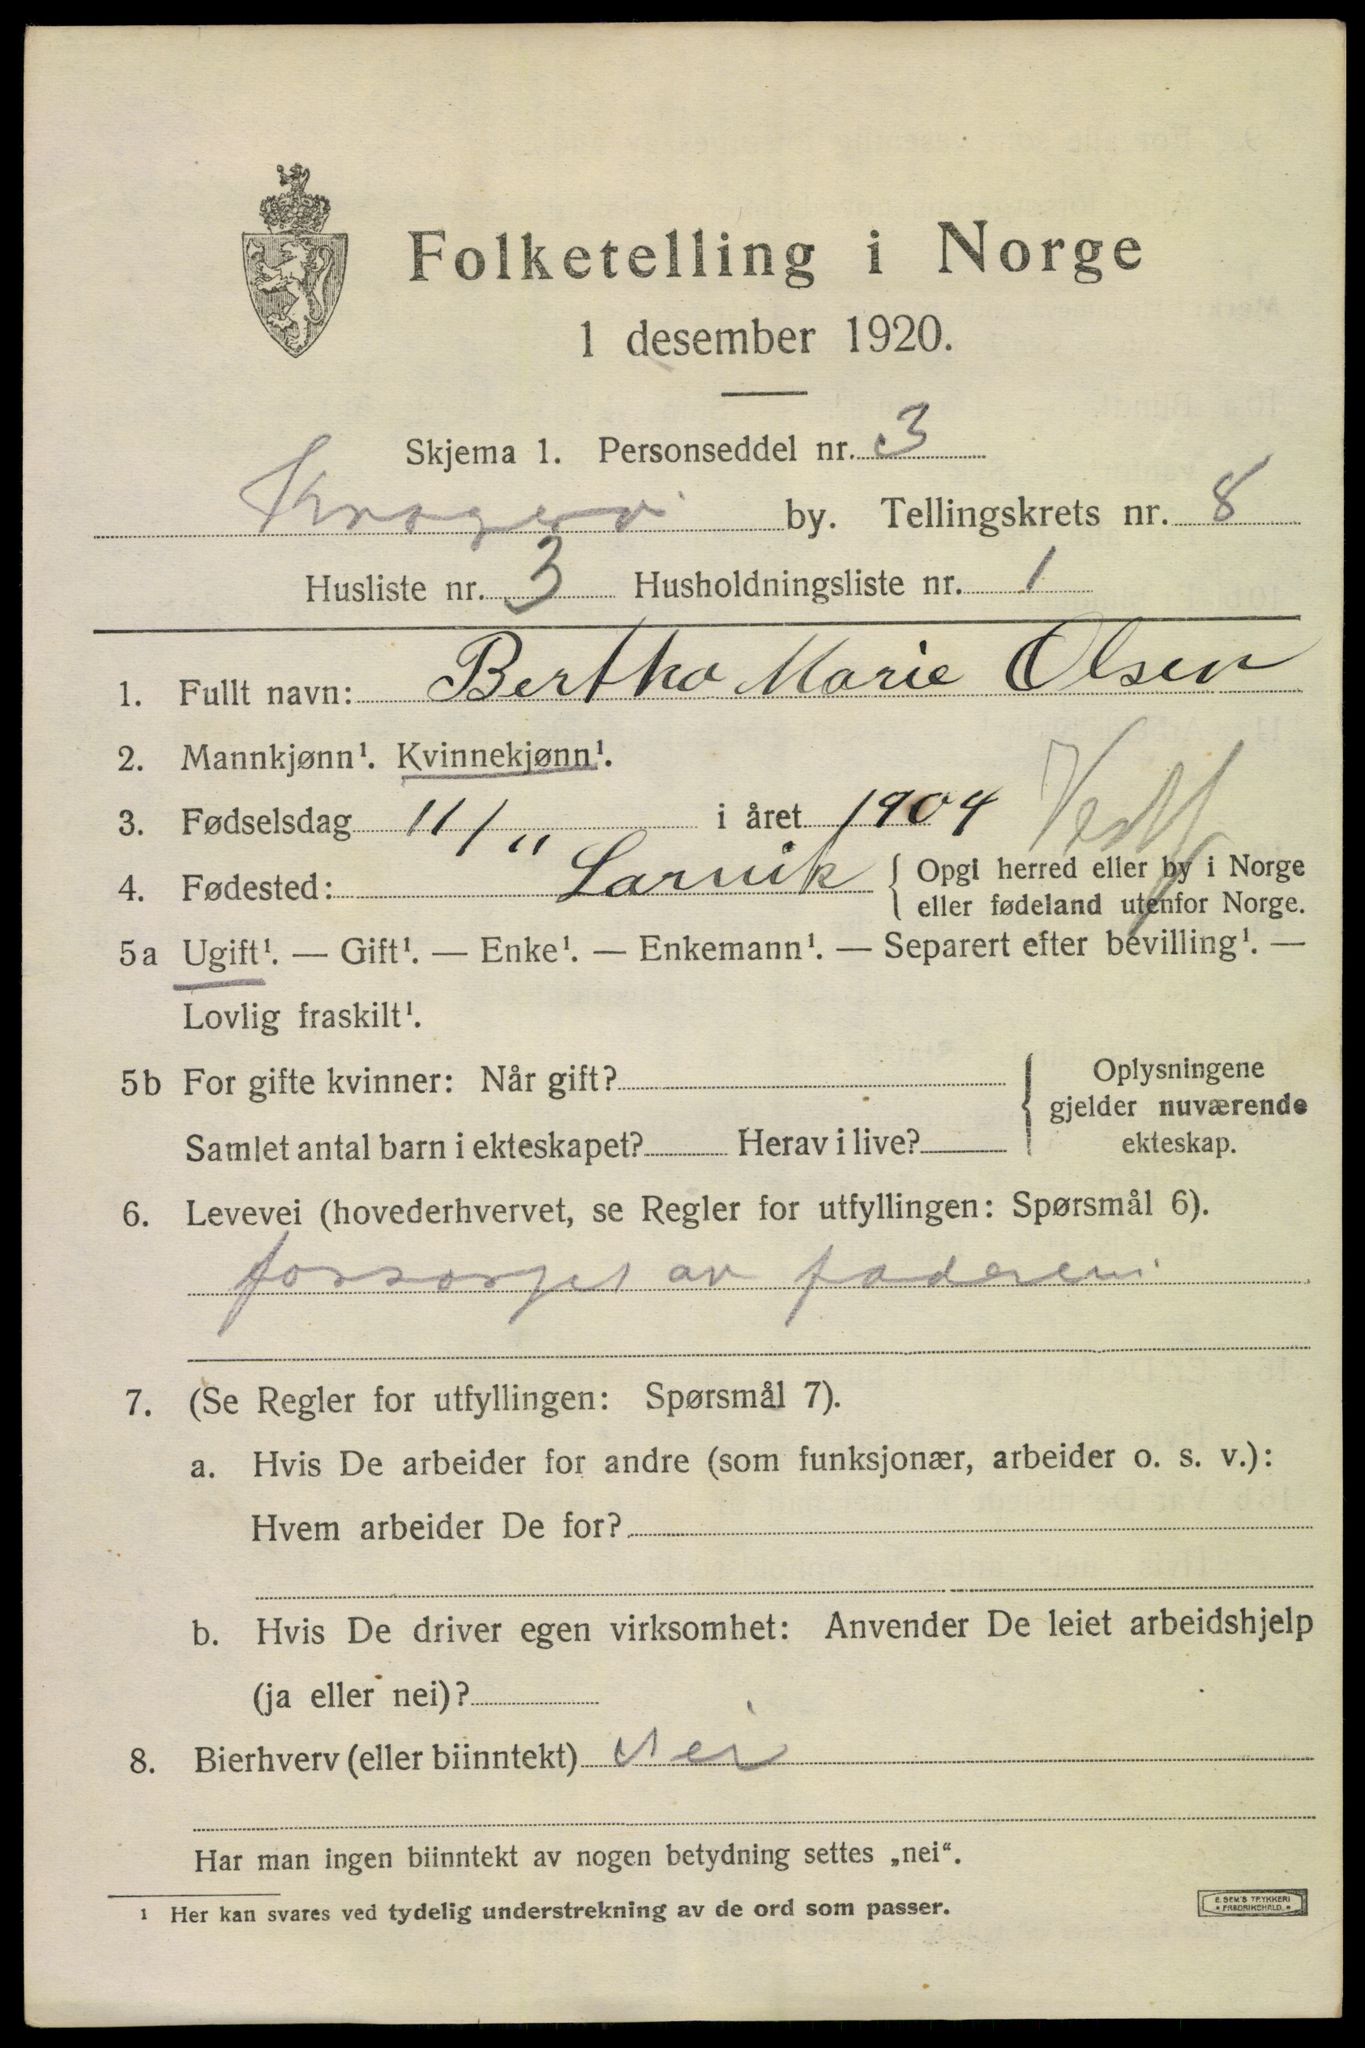 Folketelling i Norge
1 desember 1920.
Skjema 1. Personseddel nr. 3
Kragerø by. Tellingskrets nr. 8
Husliste nr. 3 Husholdningsliste nr. 1
1. Fullt navn: Bertha Marie Olsen
2. Mannkjønn¹. Kvinnekjønn¹.
3. Fødselsdag 11/11 i året 1904
4. Fødested: Larvik { Opgi herred eller by i Norge
eller fødeland utenfor Norge.
5a Ugift¹. — Gift¹. — Enke¹. — Enkemann¹. — Separert efter bevilling¹. —
Lovlig fraskilt¹.
5b For gifte kvinner: Når gift? { Oplysningene
gjelder nuværende
Samlet antal barn i ekteskapet? Herav i live? ekteskap.
6. Levevei (hovederhvervet, se Regler for utfyllingen: Spørsmål 6).
forsorget av faderen
7. (Se Regler for utfyllingen: Spørsmål 7).
a. Hvis De arbeider for andre (som funksjonær, arbeider o. s. v.):
Hvem arbeider De for?
b. Hvis De driver egen virksomhet: Anvender De leiet arbeidshjelp
(ja eller nei)?
8. Bierhverv (eller biinntekt) Nei
Har man ingen biinntekt av nogen betydning settes „nei“.
¹ Her kan svares ved tydelig understrekning av de ord som passer.
E. SEM'S TRYKKERI
* FREDRIKSHALD. *